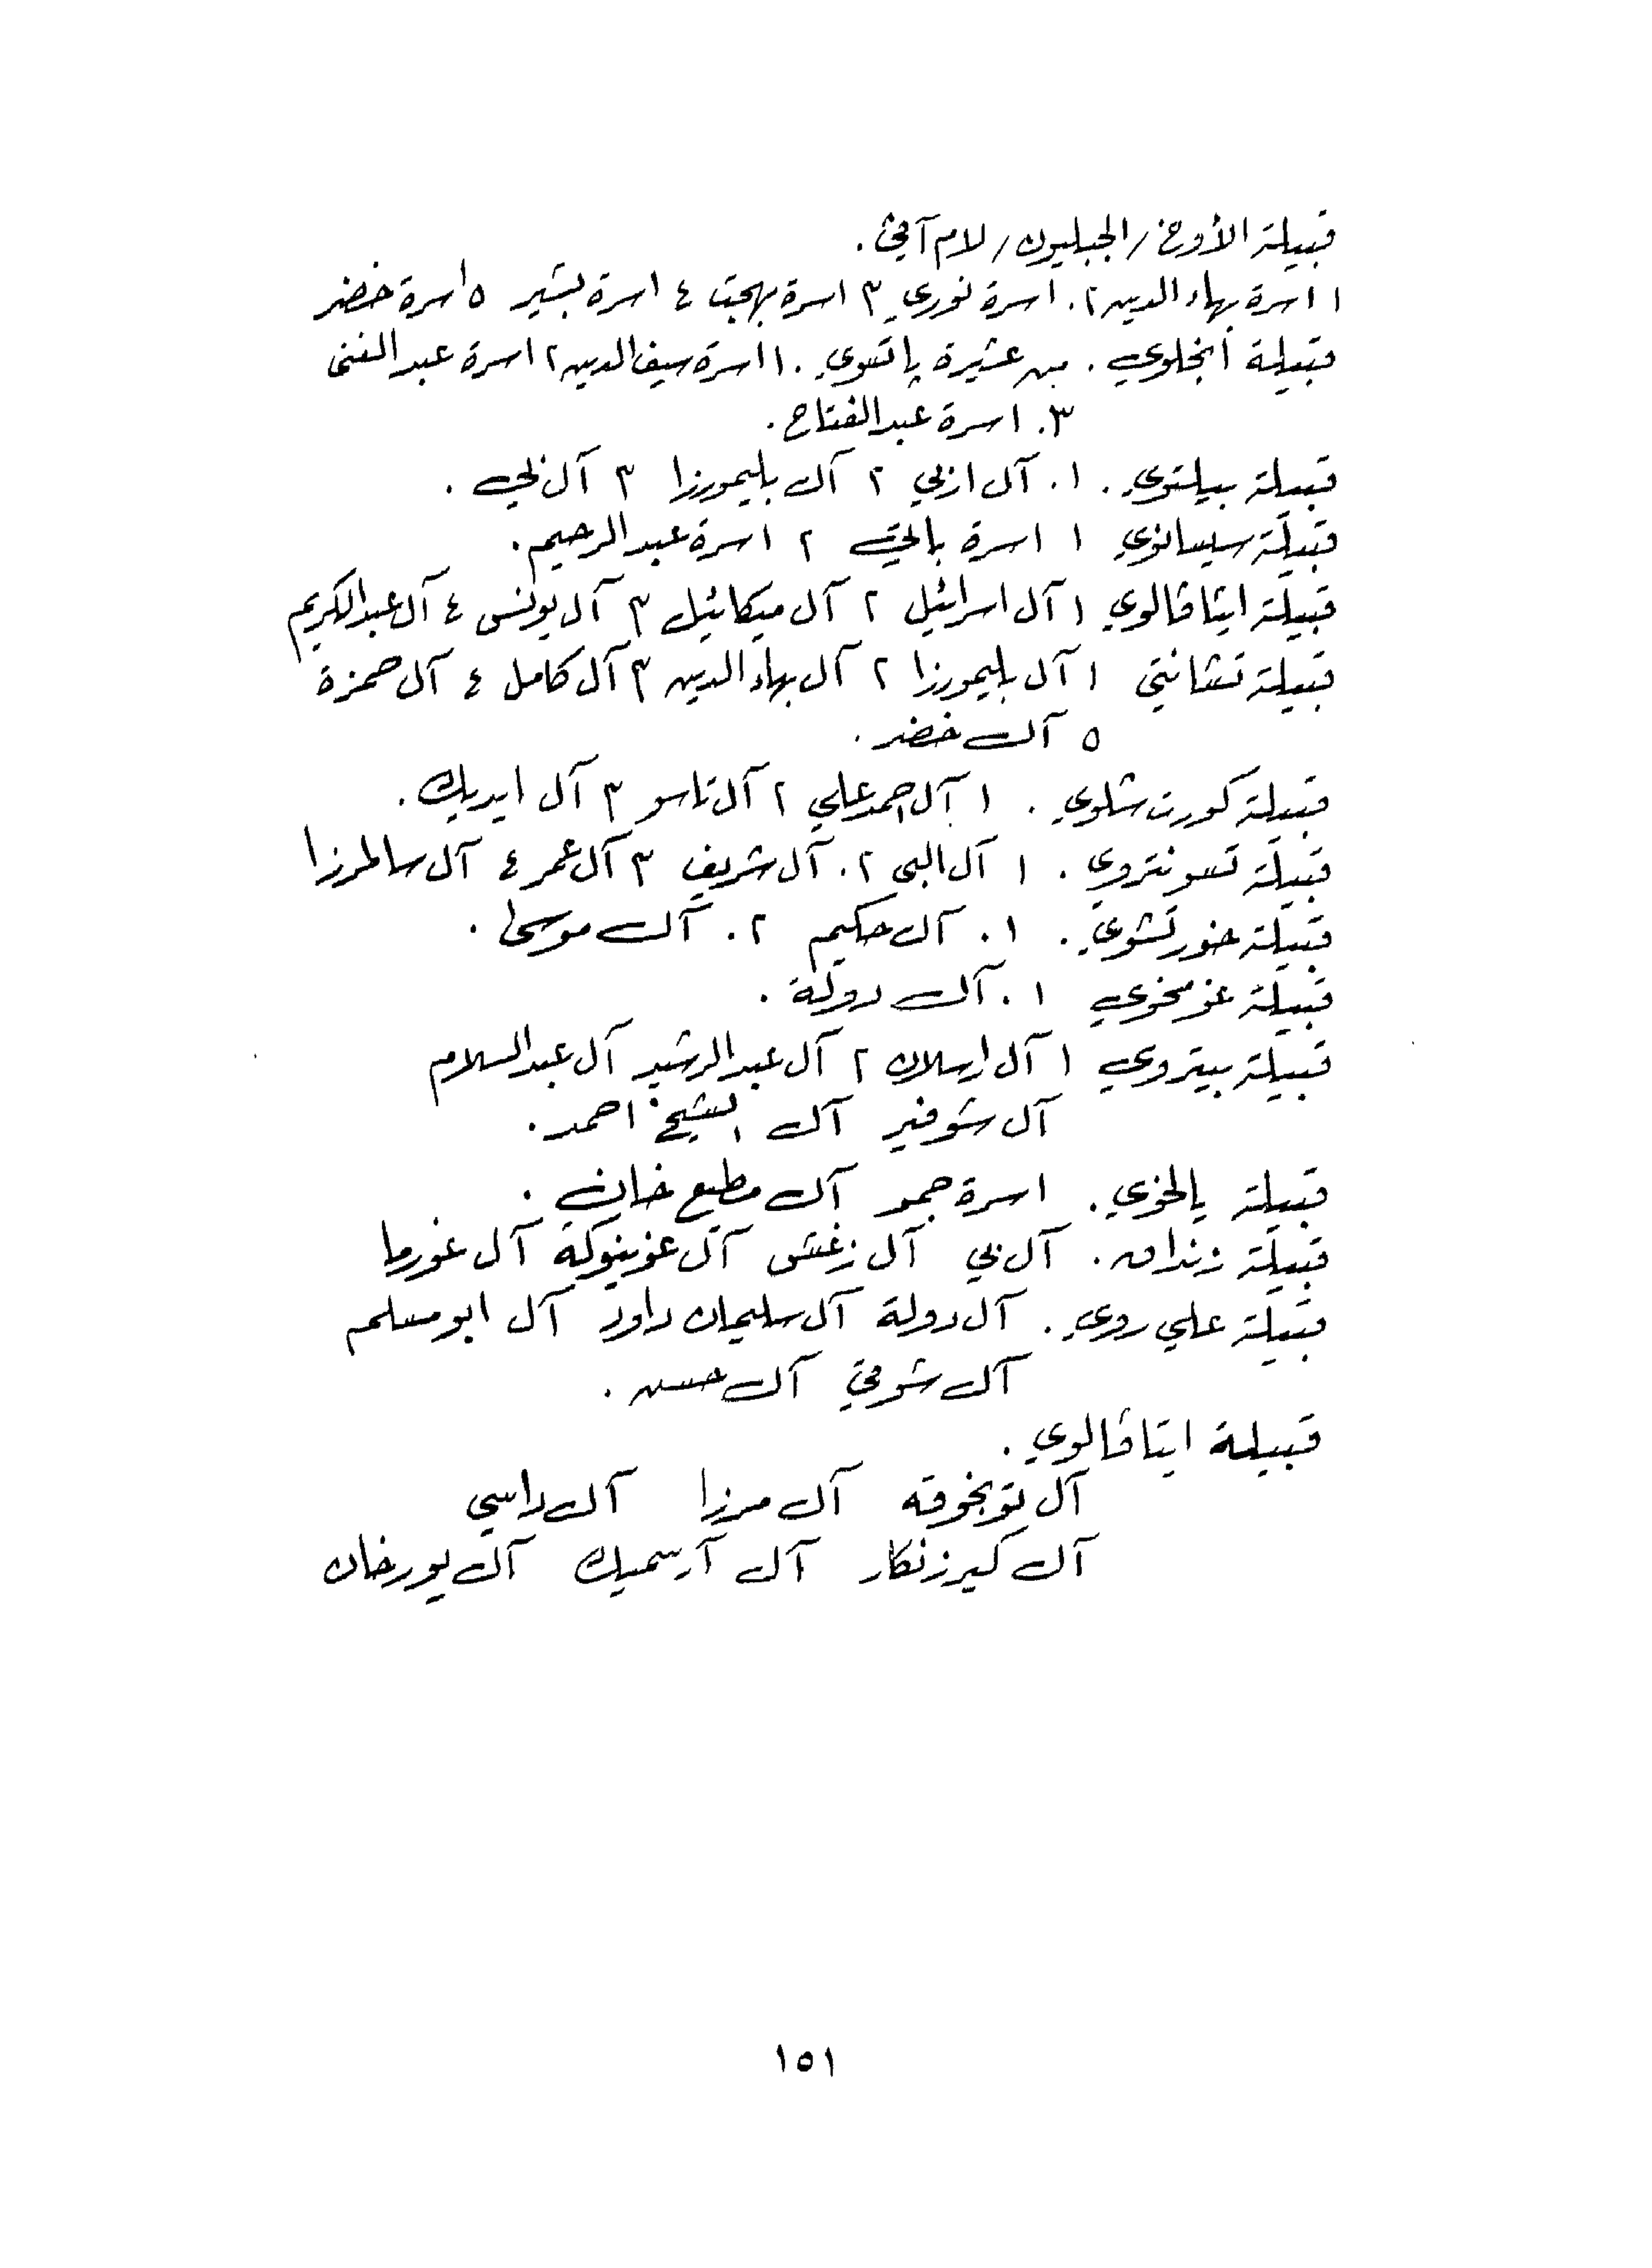 قبيلة الأوخ /الجبليون/ لام آقي .
١ اسرة بهاء الدين ٢. اسرة نوري ٣ اسرة بهجت ٤ اسرة بشير ٥ اسرة خضر
قبيلة أنخلوي . من عشيرة پاتسوي . ١ اسرة سيف الدين ٢ اسرة عبد الغني
٣. اسرة عبد الفتاح .
قبيلة بيلتوي . ١. آل ازبي ٢ آل بليمورزا ٣ آل
قبيلة سيسانوي ١ اسرة بالتي ٢ اسرة عبد الرحيم .
قبيلة ايشاقالوي ١ آل اسرائيل ٢ آل ميكائيل ٣ آل يونس ٤ آل عبد الكريم
قبيلة تشانتي ١ آل بليمورزا ٢ آل بهاء الدين ٣ آل كامل ٤ آل حمزة
٥ آل خضر .
قبيلة كورت شلوي . ١ آل احمد علي ٢ آل تاسو ٣ آل ايديك .
قبيلة تسونتروي . ١ آل البي ٢. آل شريف ٣ آل عمر ٤ آل سالمرزا
قبيلة خورتشوي . ١. آل حكيم ٢. آل موسى .
قبيلة غومخوي ١. آل دولة .
قبيلة بيتروي ١ آل ارسلان ٢ آل عبد الرشيد آل عبد السلام
آل شوفير آل الشيخ احمد .
قبيلة يالخوي . اسرة حمو آل مطيع خان .
قبيلة زنداق . آل بي آل زغش آل غوينوكة آل غورما
قبيلة علي روي . آل دولة آل سليمان داود آل ابو مسلم
آل شوقي آل حسن .
قبيلة ايتاقالوي .
آل توبخوقه آل مرزا آل داسي
آل كيرزنكار آل آرسميك آل بورخان
١٥١